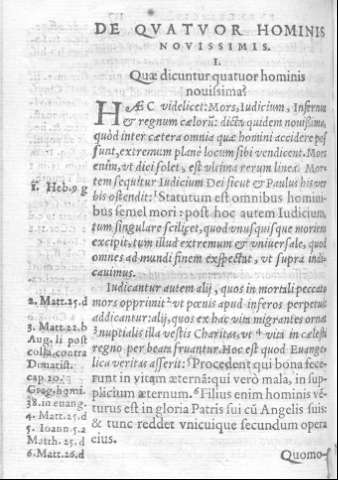 DE QVATVOR HOMINIS
NOVISSIMIS.
I.
Quæ dicuntur quatuor hominis
nouissima?
HÆC videlicet: Mors, Iudicium, Infernus
& regnum cælorũ: dicta quidem nouissima,
quòd inter cætera omnia quæ homini accidere pos
sunt, extremum planè locum sibi vendicent. Mors
enim, vt dici solet, est vltima rerum linea. Mor
tem sequitur Iudicium Dei sicut & Paulus his ver
bis ostendit: ¹ Statutum est omnibus homini-
bus semel mori: post hoc autem Iudicium,
tum singulare scilicet, quod vnusquisque moriens
excipit, tum illud extremum & vniuersale, quod
omnes ad mundi finem exspectat, vt supra indi-
cauimus.
Iudicantur autem alij, quos in mortali peccato
mors opprimit ² vt pœnis apud inferos perpetuis
addicantur: alij, quos ex hac vita migrantes ornat
³ nuptialis illa vestis Charitas, vt ⁴ vita in cælesti
regno per beati fruantur. Hoc est quod Euange-
lica veritas asserit: ⁵ Procedent qui bona fece-
runt in vitam æternã: qui verò mala, in sup-
plicium æternum. ⁶ Filius enim hominis vẽ-
turus est in gloria Patris sui cũ Angelis suis:
& tunc reddet vnicuique secundum opera
eius.
Quomo-
1. Heb. 9 g
2. Matt. 25. d
3. Matt. 22. b
Aug. li post
colla. contra
Donatist.
cap. 20.
Greg. homi.
38. in euang.
4. Matt. 25. d
5. Ioann. 5. c
Matth. 25. d
6. Matt. 16. d